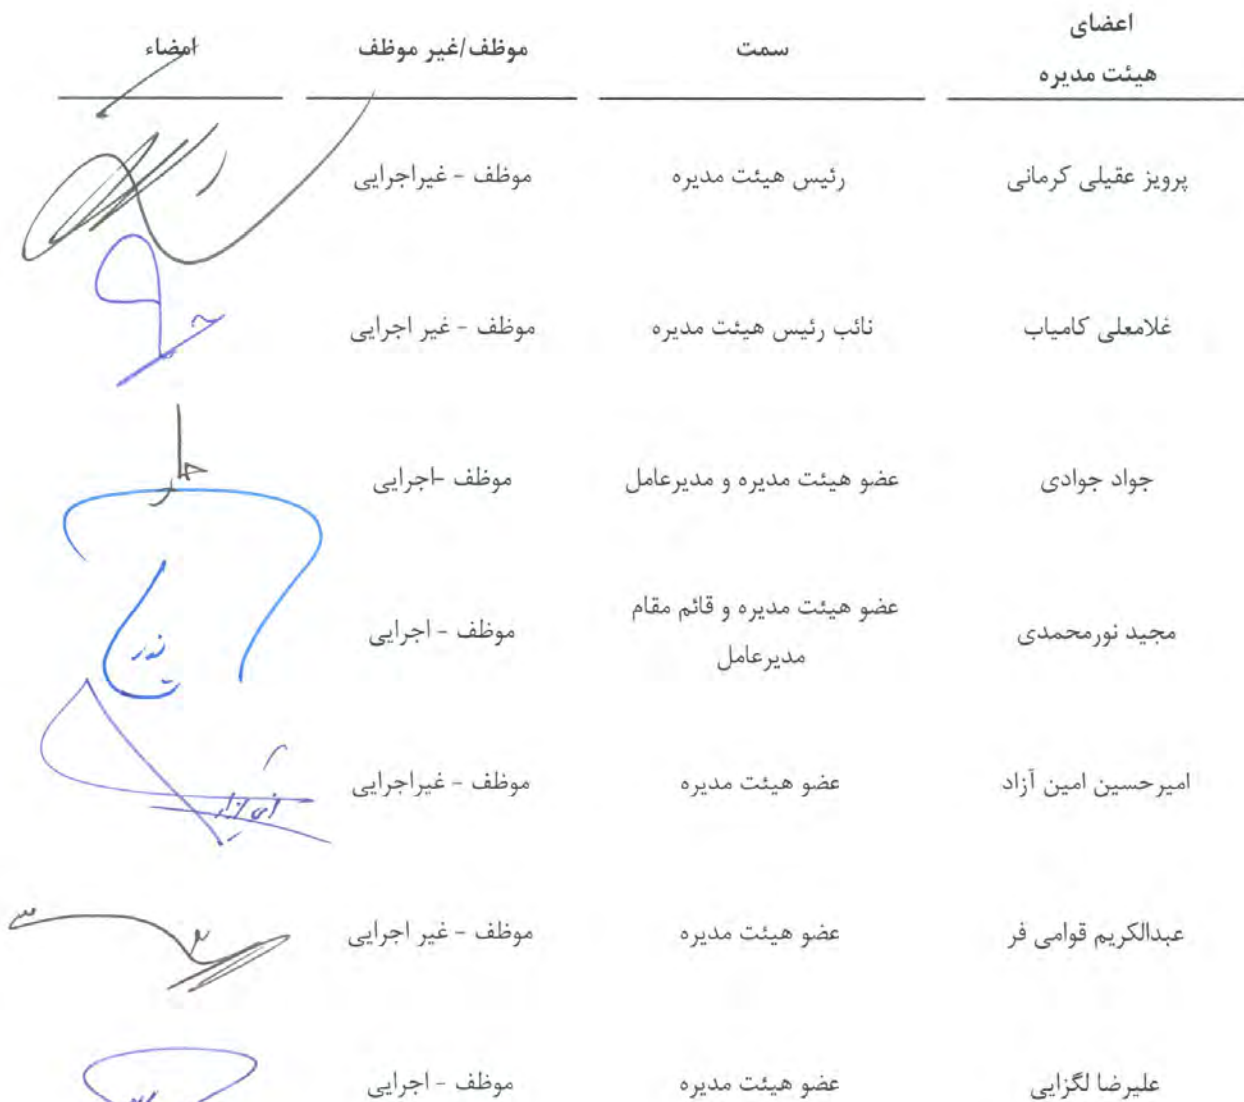 اعضای
هیئت مدیره
سمت
موظف/غیر موظف
امضاء
پرویز عقیلی کرمانی
رئیس هیئت مدیره
موظف - غیراجرایی
غلامعلی کامیاب
نائب رئیس هیئت مدیره
موظف - غیر اجرایی
جواد جوادی
عضو هیئت مدیره و مدیرعامل
موظف -اجرایی
مجید نورمحمدی
عضو هیئت مدیره و قائم مقام
مدیرعامل
موظف - اجرایی
امیرحسین امین آزاد
عضو هیئت مدیره
موظف - غیراجرایی
عبدالکریم قوامی فر
عضو هیئت مدیره
موظف - غیر اجرایی
علیرضا لگزایی
عضو هیئت مدیره
موظف - اجرایی